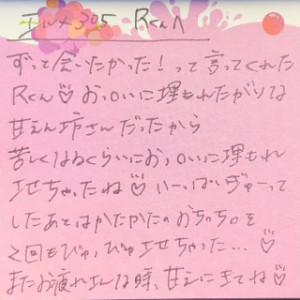 305 Rくんへ
ずっと会いたかった！って言ってくれた
Rくん♡ おっ○いに埋もれたがりな
甘えん坊さんだったから
苦しくなるくらいにおっ○いに埋もれ
させちゃったね♡ いーっぱいぎゅーって
したあとはかたかたのおち○ち○を
2回もぴゅっぴゅさせちゃった…♡
またお疲れさんな時、甘えにきてね♡